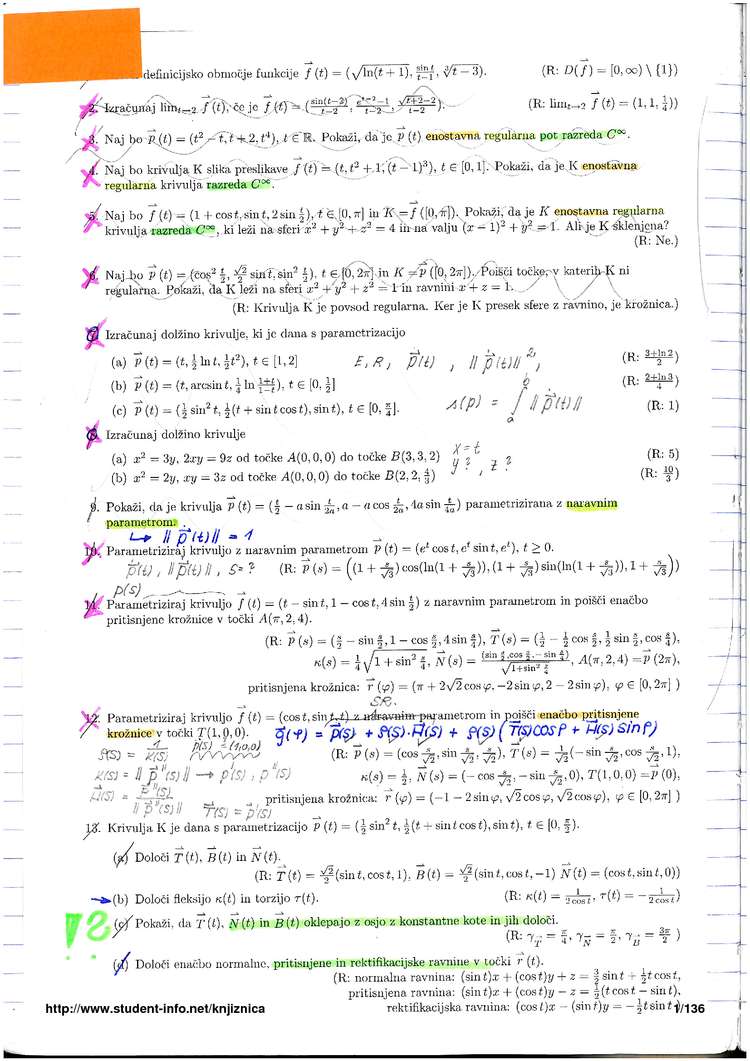 definicijsko območje funkcije f⃗(t) = (√ln(t+1), sin t/(t−1), ∛(t−3)). (R: D(f⃗) = [0,∞) \ {1})
2. Izračunaj lim t→2 f⃗(t), če je f⃗(t) = (sin(t−2)/(t−2), (e^(t−2)−1)/(t−2), (√(t+2)−2)/(t−2)). (R: lim t→2 f⃗(t) = (1, 1, 1/4))
3. Naj bo p⃗(t) = (t² − t, t + 2, t⁴), t ∈ ℝ. Pokaži, da je p⃗(t) enostavna regularna pot razreda C^∞.
4. Naj bo krivulja K slika preslikave f⃗(t) = (t, t² + 1, (t − 1)³), t ∈ [0, 1]. Pokaži, da je K enostavna
regularna krivulja razreda C^∞.
5. Naj bo f⃗(t) = (1 + cos t, sin t, 2 sin t/2), t ∈ [0, π] in K = f⃗([0, π]). Pokaži, da je K enostavna regularna
krivulja razreda C^∞, ki leži na sferi x² + y² + z² = 4 in na valju (x − 1)² + y² = 1. Ali je K sklenjena?
(R: Ne.)
6. Naj bo p⃗(t) = (cos² t/2, √2/2 sin t, sin² t/2), t ∈ [0, 2π] in K = p⃗([0, 2π]). Poišči točke, v katerih K ni
regularna. Pokaži, da K leži na sferi x² + y² + z² = 1 in ravnini x + z = 1.
(R: Krivulja K je povsod regularna. Ker je K presek sfere z ravnino, je krožnica.)
7. Izračunaj dolžino krivulje, ki je dana s parametrizacijo
(a) p⃗(t) = (t, 1/2 ln t, 1/2 t²), t ∈ [1, 2] E, R, p⃗(t), ‖p⃗(t)‖², (R: (3+ln 2)/2)
(b) p⃗(t) = (t, arcsin t, 1/4 ln (1+t)/(1−t)), t ∈ [0, 1/2] (R: (2+ln 3)/4)
(c) p⃗(t) = (1/2 sin² t, 1/2(t + sin t cos t), sin t), t ∈ [0, π/4]. s(p) = ∫ₐᵇ ‖p⃗(t)‖ (R: 1)
8. Izračunaj dolžino krivulje
(a) x² = 3y, 2xy = 9z od točke A(0, 0, 0) do točke B(3, 3, 2) x = t (R: 5)
y? , z?
(b) x² = 2y, xy = 3z od točke A(0, 0, 0) do točke B(2, 2, 4/3) (R: 10/3)
9. Pokaži, da je krivulja p⃗(t) = (t/2 − a sin t/2a, a − a cos t/2a, 4a sin t/4a) parametrizirana z naravnim
parametrom.
↳ ‖p⃗(t)‖ = 1
10. Parametriziraj krivuljo z naravnim parametrom p⃗(t) = (e^t cos t, e^t sin t, e^t), t ≥ 0.
p⃗(t), ‖p⃗(t)‖, s = ? (R: p⃗(s) = ((1 + s/√3) cos(ln(1 + s/√3)), (1 + s/√3) sin(ln(1 + s/√3)), 1 + s/√3))
p(s)
11. Parametriziraj krivuljo f⃗(t) = (t − sin t, 1 − cos t, 4 sin t/2) z naravnim parametrom in poišči enačbo
pritisnjene krožnice v točki A(π, 2, 4).
(R: p⃗(s) = (s/2 − sin s/2, 1 − cos s/2, 4 sin s/4), T⃗(s) = (1/2 − 1/2 cos s/2, 1/2 sin s/2, cos s/4),
κ(s) = 1/4 √(1 + sin² s/4), N⃗(s) = (sin s/2, cos s/2, −sin s/4)/√(1+sin² s/4), A(π, 2, 4) = p⃗(2π),
pritisnjena krožnica: r⃗(φ) = (π + 2√2 cos φ, −2 sin φ, 2 − 2 sin φ), φ ∈ [0, 2π] )
SR.
12. Parametriziraj krivuljo f⃗(t) = (cos t, sin t, t) z naravnim parametrom in poišči enačbo pritisnjene
krožnice v točki T(1, 0, 0). g⃗(φ) = p⃗(s) + ρ(s)·N⃗(s) + ρ(s)(T⃗(s)cosφ + N⃗(s)sinφ)
ρ(s) = 1/κ(s) p(s) = (1,0,0) (R: p⃗(s) = (cos s/√2, sin s/√2, s/√2), T⃗(s) = 1/√2(−sin s/√2, cos s/√2, 1),
κ(s) = ‖p⃗''(s)‖ → p'(s), p''(s) κ(s) = 1/2, N⃗(s) = (−cos s/√2, −sin s/√2, 0), T(1, 0, 0) = p⃗(0),
N⃗(s) = p⃗''(s)/‖p⃗''(s)‖ T⃗(s) = p⃗'(s) pritisnjena krožnica: r⃗(φ) = (−1 − 2 sin φ, √2 cos φ, √2 cos φ), φ ∈ [0, 2π] )
13. Krivulja K je dana s parametrizacijo p⃗(t) = (1/2 sin² t, 1/2(t + sin t cos t), sin t), t ∈ [0, π/2).
(a) Določi T⃗(t), B⃗(t) in N⃗(t).
(R: T⃗(t) = √2/2(sin t, cos t, 1), B⃗(t) = √2/2(sin t, cos t, −1) N⃗(t) = (cos t, sin t, 0))
→(b) Določi fleksijo κ(t) in torzijo τ(t). (R: κ(t) = 1/(2 cos t), τ(t) = −1/(2 cos t))
!? (c) Pokaži, da T⃗(t), N⃗(t) in B⃗(t) oklepajo z osjo z konstantne kote in jih določi.
(R: γ_T⃗ = π/4, γ_N⃗ = π/2, γ_B⃗ = 3π/2 )
(d) Določi enačbo normalne, pritisnjene in rektifikacijske ravnine v točki r⃗(t).
(R: normalna ravnina: (sin t)x + (cos t)y + z = 3/2 sin t + 1/2 t cos t,
pritisnjena ravnina: (sin t)x + (cos t)y − z = 1/2(t cos t − sin t),
http://www.student-info.net/knjiznica rektifikacijska ravnina: (cos t)x − (sin t)y = −1/2 t sin t 1/136